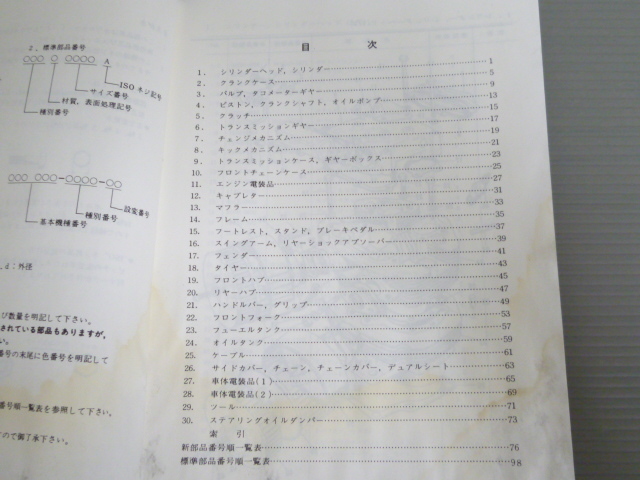 2. 標準部品番号
○○○ ○ ○○○○ A
ISO ネジ記号
サイズ番号
材質, 表面処理記号
種別番号
○○○ ○○○-○○○○-○○
設変番号
種別番号
基本機種番号
d : 外径
び数量を明記して下さい。
されている部品もありますが,
い。
番号の末尾に色番号を明記して
番号順一覧表を参照して下さい。
ので御了承下さい。
目 次
1. シリンダーヘッド, シリンダー 1
2. クランクケース 5
3. バルブ, タコメーターギヤ 9
4. ピストン, クランクシャフト, オイルポンプ 13
5. クラッチ 15
6. トランスミッションギヤ 17
7. チェンジメカニズム 19
8. キックメカニズム 21
9. トランスミッションケース, ギヤーボックス 23
10. フロントチェーンケース 25
11. エンジン電装品 27
12. キャブレター 31
13. マフラー 33
14. フレーム 35
15. フートレスト, スタンド, ブレーキペダル 37
16. スイングアーム, リヤーショックアブソーバー 39
17. フェンダー 41
18. タイヤー 43
19. フロントハブ 45
20. リヤーハブ 47
21. ハンドルバー, グリップ 49
22. フロントフォーク 53
23. フューエルタンク 57
24. オイルタンク 59
25. ケーブル 61
26. サイドカバー, チェーン, チェーンカバー, デュアルシート 63
27. 車体電装品(1) 65
28. 車体電装品(2) 69
29. ツール 71
30. ステアリングオイルダンパー 73
索 引
新部品番号順一覧表 76
標準部品番号順一覧表 98